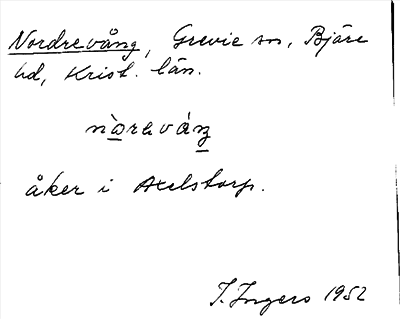 Nordrevång, Grevie sn, Bjäre
hd, Krist. län.
nòreváng
åker i Axelstorp.
I. Ingers 1952